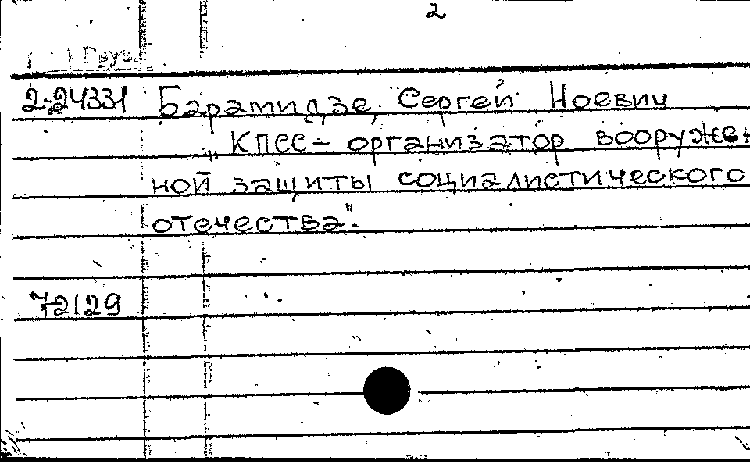 2
Груз.
2-24331 Барамидзе, Сергей Ноевич
„КПСС – организатор вооруже-
ной защиты социалистического
отечества".
72129